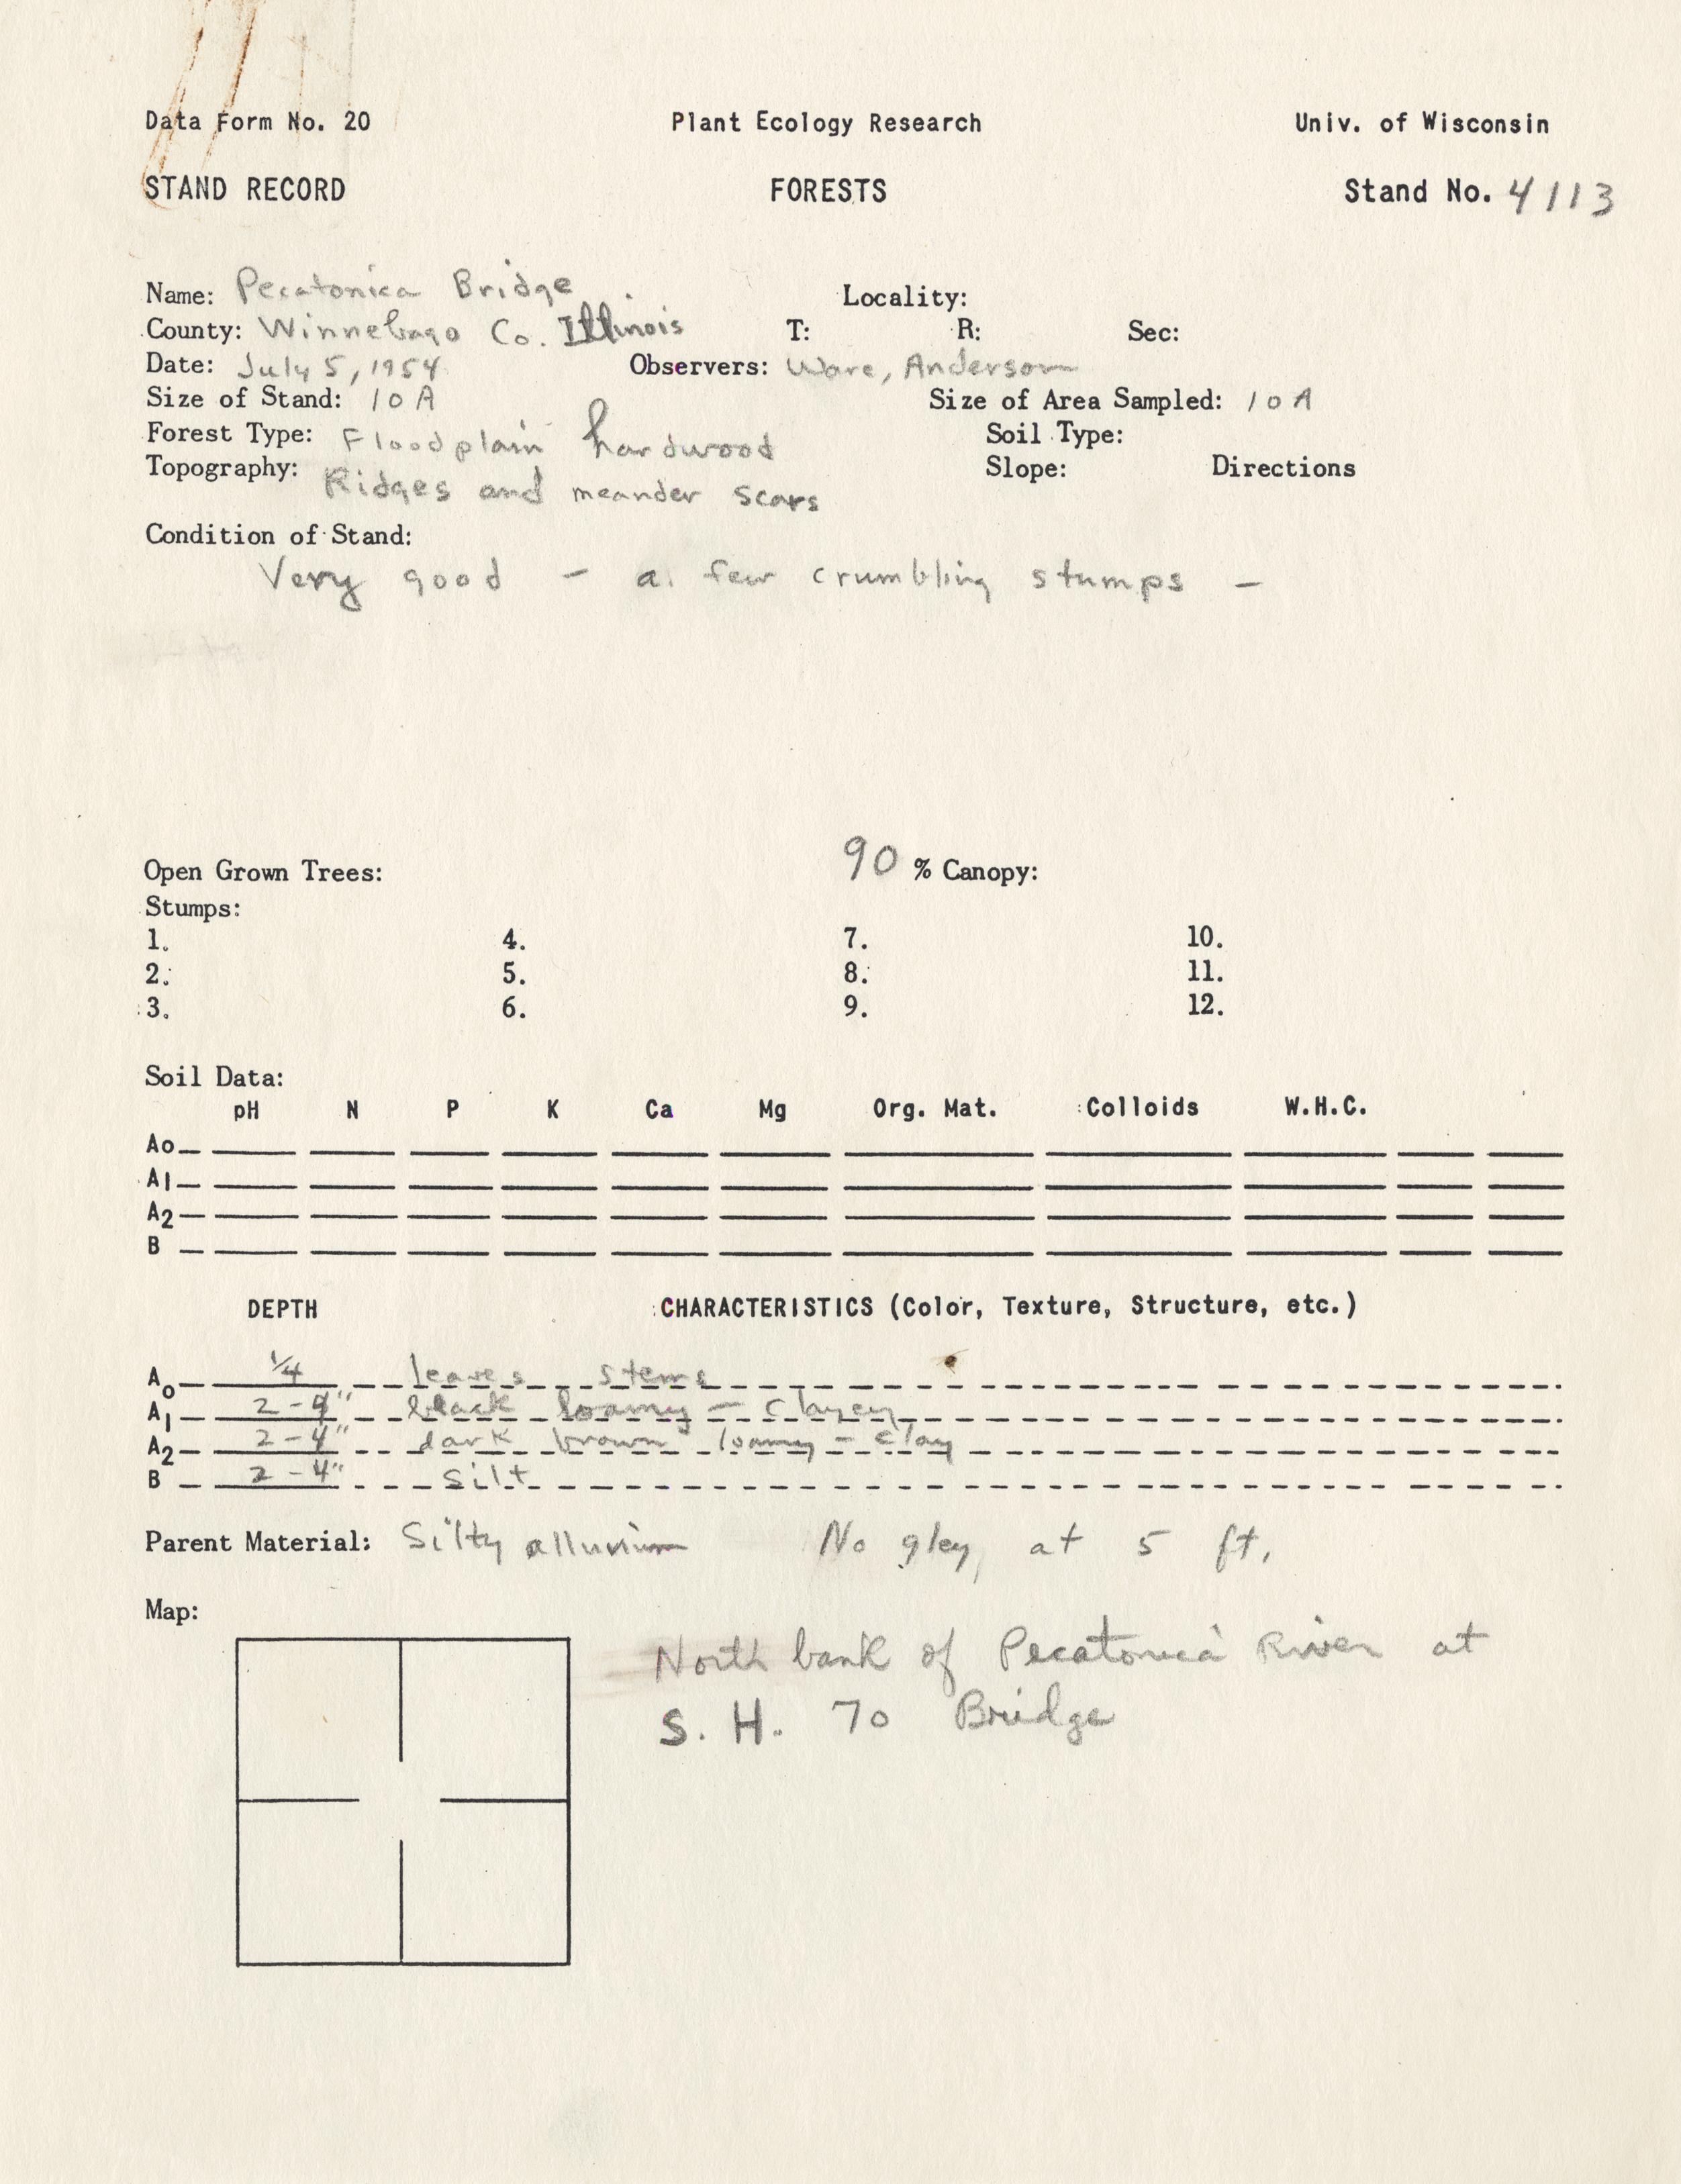 Data Form No. 20 Plant Ecology Research Univ. of Wisconsin
STAND RECORD FORESTS Stand No. 4113
Name: Pecatonica Bridge Locality:
County: Winnebago Co. Illinois T: R: Sec:
Date: July 5, 1954 Observers: Ware, Anderson
Size of Stand: 10 A Size of Area Sampled: 10 A
Forest Type: Floodplain hardwood Soil Type:
Topography: Ridges and meander scars Slope: Directions
Condition of Stand:
Very good - a few crumbling stumps -
Open Grown Trees: 90 % Canopy:
Stumps:
1. 4. 7. 10.
2. 5. 8. 11.
3. 6. 9. 12.
Soil Data:
pH N P K Ca Mg Org. Mat. Colloids W.H.C.
Ao
A1
A2
B
DEPTH CHARACTERISTICS (Color, Texture, Structure, etc.)
Ao 1/4 leaves stems
A1 2-4" black loamy - clayey
A2 2-4" dark brown loamy - clay
B 2-4" silt
Parent Material: Silty alluvium No gley, at 5 ft.
Map:
North bank of Pecatonica River at
S. H. 70 Bridge